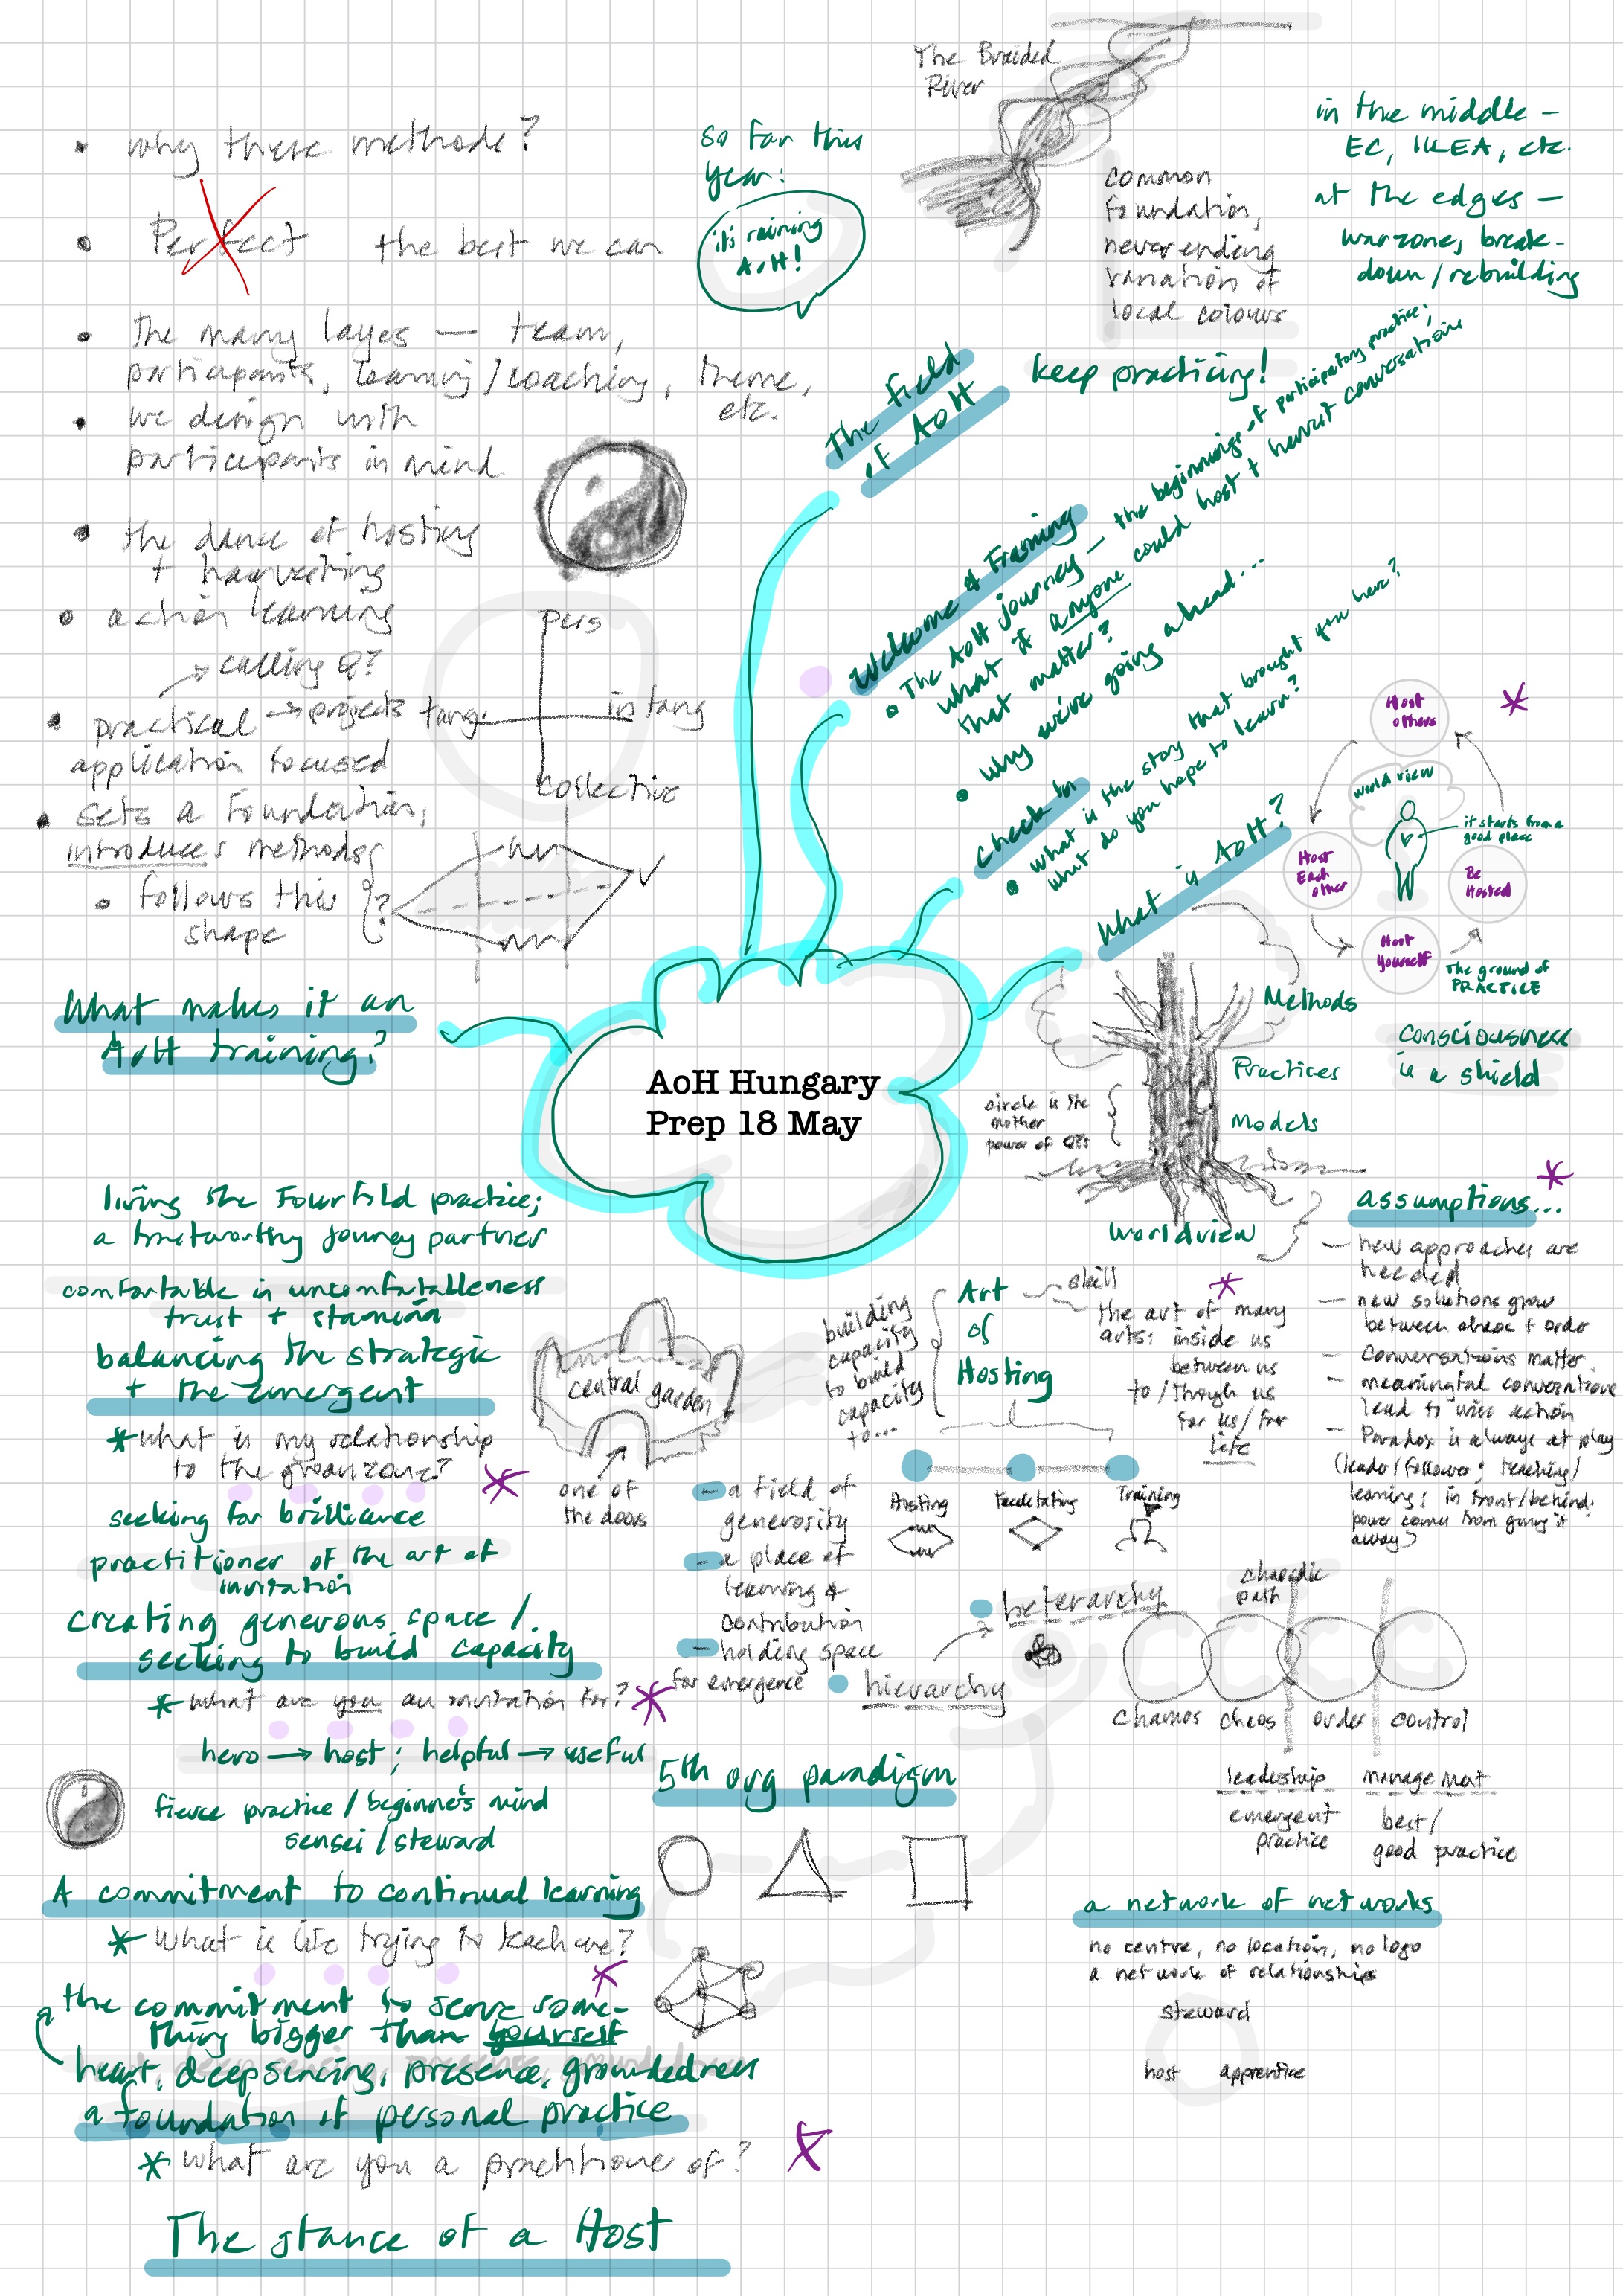 AoH Hungary
Prep 18 May
The Braided
River
common
foundation,
neverending
variation of
local colours
in the middle –
EC, IKEA, etc.
at the edges –
warzone, break-
down / rebuilding
so far this
year:
it's raining
AoH!
keep practicing!
The field
of AoH
Welcome & Framing
• The AoH journey – the beginnings of participatory practice;
what if anyone could host + harvest conversations
that matter?
• Why we're going ahead...
Check in
• what is the story that brought you here?
what do you hope to learn?
What is AoH?
Host
others
world view
it starts from a
good place
Host
Each
other
Be
Hosted
Host
Yourself
The ground of
PRACTICE
Consciousness
is a shield
Methods
Practices
Models
circle is the
mother
power of Q?s
Worldview
assumptions...
– new approaches are
needed
– new solutions grow
between chaos + order
– Conversations matter
– meaningful conversations
lead to wise action
– Paradox is always at play
(leader/follower; teaching/
learning; in front/behind;
power comes from giving it
away)
building
capacity
to build
capacity
to...
Art
of
Hosting
skill
the art of many
arts: inside us
between us
to/through us
for us/for
life
Hosting
Facilitating
Training
heterarchy
hierarchy
chaordic
path
chamos
chaos
order
control
leadership
emergent
practice
management
best/
good practice
a network of networks
no centre, no location, no logo
a network of relationships
steward
host
apprentice
central garden
one of
the doors
– a field of
generosity
– a place of
learning &
contribution
– holding space
for emergence
5th org paradigm
• why these methods?
• Perfect the best we can
• The many layes — team,
participants, learning/coaching, theme,
etc.
• we design with
participants in mind
• the dance of hosting
+ harvesting
• action learning
→ calling Q?
• practical → projects
application focused
pers
tang.
intang
collective
• sets a foundation,
introduces methods
• follows this
shape
?
What makes it an
AoH training?
living the Fourfold practice;
a trustworthy journey partner
comfortable in uncomfortableness
trust + stamina
balancing the strategic
+ the emergent
* What is my relationship
to the groanzone?
seeking for brilliance
practitioner of the art of
invitation
creating generous space /
seeking to build capacity
* What are you an invitation for?
hero → host; helpful → useful
fierce practice / beginner's mind
sensei / steward
A commitment to continual learning
* What is life trying to teach me?
the commitment to serve some-
thing bigger than yourself
heart, deep sensing, presence, groundedness
a foundation of personal practice
* What are you a practitione of?
The stance of a Host